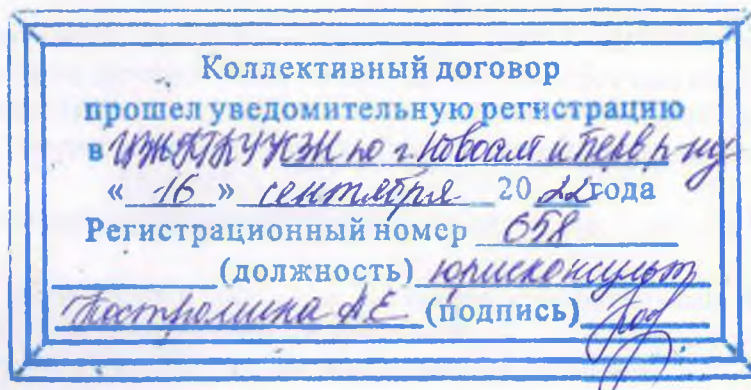 Коллективный договор
прошел уведомительную регистрацию
в по г. Новоалт и Перв р-ну
« 16 » сентября 20 22 года
Регистрационный номер 658
(должность) юрисконсульт
АЕ (подпись)